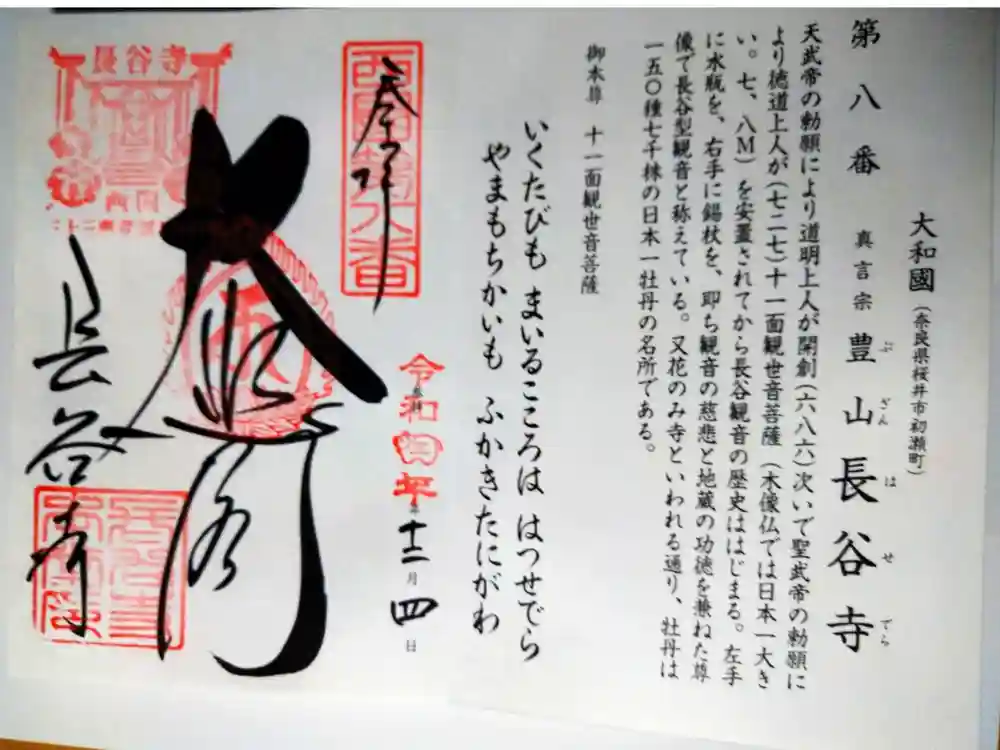 大和國（奈良県桜井市初瀬町）
第八番 真言宗 豊山長谷寺
ぶざん はせでら
天武帝の勅願により道明上人が開創（六八六）次いで聖武帝の勅願に
より徳道上人が（七二七）十一面観世音菩薩（木像仏では日本一大き
い。七、八Ｍ）を安置されてから長谷観音の歴史ははじまる。左手
に水瓶を、右手に錫杖を、即ち観音の慈悲と地蔵の功徳を兼ねた尊
像で長谷型観音と称えている。又花のみ寺といわれる通り、牡丹は
一五〇種七千株の日本一牡丹の名所である。
御本尊 十一面観世音菩薩
いくたびも まいるこころは はつせでら
やまもちかいも ふかきたにがわ
奉拝
西国第八番
令和四年十二月四日
大悲閣
長谷寺